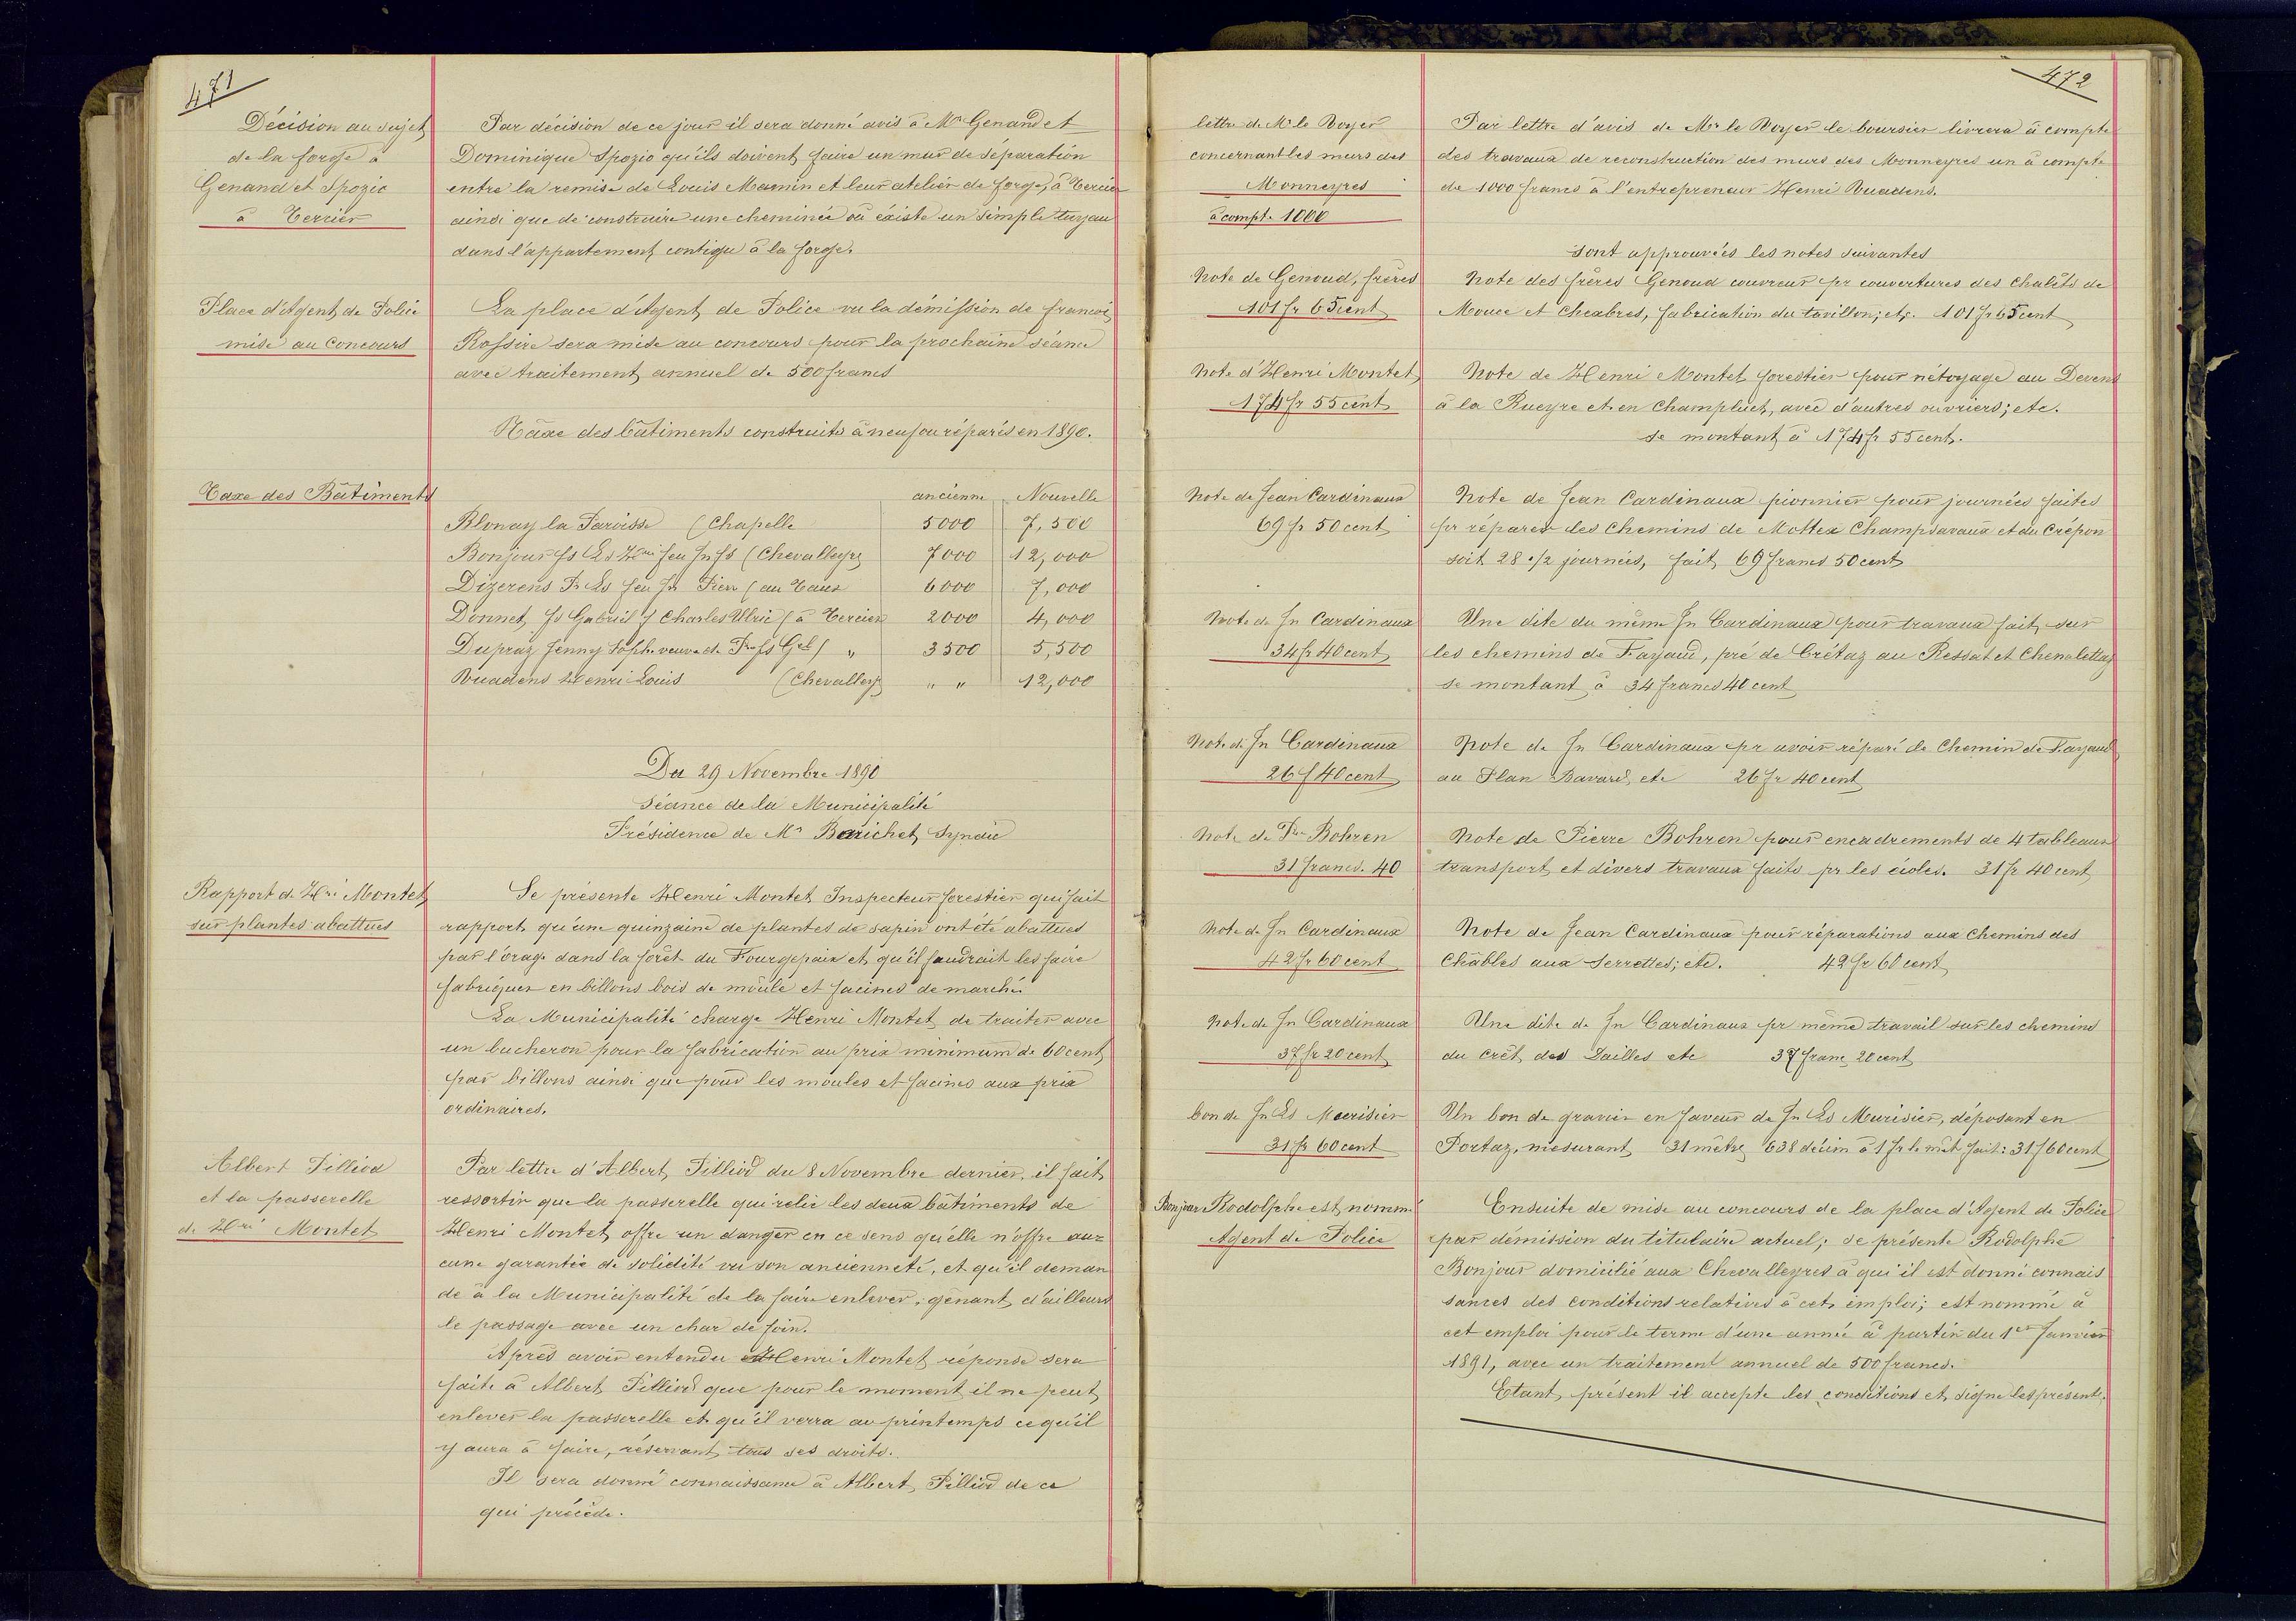 471
Décision au sujet
de la forge à
Genand et Spozio
à Tercier
Par décision de ce jour il sera donné avis à Mr Genand et
Dominique Spozio qu'ils doivent faire un mur de séparation
entre la remise de Louis Mamin et leur atelier de forge, à Tercier
ainsi que de construire une cheminée où éxiste un simple tuyau
dans l'appartement contigu à la forge.
Place d'Agent de Police
mise au Concours
La place d'Agent de Police vu la démission de françois
Rossire sera mise au concours pour la prochaine séance
avec traitement annuel de 500 francs
Taxe des bâtiments construits à neuf ou réparés en 1890.
Taxe des Bâtiments
ancienne Nouvelle
Blonay la Paroisse (Chapelle 5000 7,500
Bonjour fs Ls Hri feu Jn fs (Chevalleyre 7000 12,000
Dizerens Fs Ls feu Jn Pierre (au Taux 6000 7,000
Donnet fs Gabriel ff Charles Ulric (à Tercier 2000 4,000
Dupraz Jenny Soph. veuve de Frs fs Gel ( " 3500 5,500
Vuadens Henri Louis (Chevalleyre " " 12,000
Du 29 Novembre 1890
Séance de la Municipalité
Présidence de Mr Barichet, Syndic
Rapport de Hri Montet
sur plantes abattues
Se présente Henri Montet Inspecteur forestier qui fait
rapport qu'une quinzaine de plantes de sapin ont été abattues
par l'orage dans la forêt du Fourgepaix et qu'il faudrait les faire
fabriquer en billons bois de moûle et facines de marché.
La Municipalité charge Henri Montet de traiter avec
un bucheron pour la fabrication au prix minimum de 60 cent
par billons ainsi que pour les moules et facines aux prix
ordinaires.
Albert Pilliod
et la passerelle
de Hri Montet
Par lettre d'Albert Pilliod du 8 Novembre dernier, il fait
ressortir que la passerelle qui relie les deux bâtiments de
Henri Montet offre un danger en ce sens qu'elle n'offre au=
cune garantie de solidité vu son ancienneté, et qu'il deman
de à la Municipalité de la faire enlever, gênant d'ailleurs
le passage avec un char de foin.
Après avoir entendu Henri Montet réponse sera
faite à Albert Pilliod que pour le moment il ne peut
enlever la passerelle et qu'il verra au printemps ce qu'il
y aura à faire, réservant tous ses droits.
Il sera donné connaissance à Albert Pilliod de ce
qui précède.
472
lettre de Mr le Voyer
concernant les murs des
Monneyres
à compte 1000
Par lettre d'avis de Mr le Voyer le boursier livrera à compte
des travaux de reconstruction des murs des Monneyres un à compte
de 1000 francs à l'entrepreneur Henri Vuadens.
Sont approuvées les notes suivantes
Note de Genoud, frères
101 fr 65 cent
Note des frères Genoud couvreurs pr couvertures des chalêts de
Mouce et Chexbres, fabrication du tavillon; etc. 101 fr 65 cent
Note d'Henri Montet
174 fr 55 cent
Note de Henri Montet forestier pour nétoyage au Devens
à la Rueyre et en Champluet, avec d'autres ouvriers; etc.
se montant à 174 fr 55 cent.
Note de Jean Cardinaux
69 fr 50 cent
Note de Jean Cardinaux pionnier pour journées faites
pr réparer les chemins de Mottex Champsavaux et du Crépon
soit 28 1/2 journées, fait 69 francs 50 cent
Note de Jn Cardinaux
34 fr 40 cent
Une dite du même Jn Cardinaux pour travaux fait sur
les chemins de Fayaud, pré de Crétaz au Ressat et Chenalettaz
se montant à 34 francs 40 cent
Note de Jn Cardinaux
26 f 40 cent
Note de Jn Cardinaux pr avoir réparé le Chemin de Fayaud
au Plan Bavard, etc 26 fr 40 cent
Note de Pre Bohren
31 francs. 40
Note de Pierre Bohren pour encadrements de 4 tableaux
transport et divers travaux faits pr les écoles. 31 fr 40 cent
Note de Jn Cardinaux
42 fr 60 cent
Note de Jean Cardinaux pour réparations aux Chemins des
Châbles aux Serrettes; etc. 42 fr 60 cent
Note de Jn Cardinaux
37 fr 20 cent
Une dite de Jn Cardinaux pr même travail sur les chemins
du Crêt des Dailles etc 37 franc 20 cent
bon de Jn Ls Murisier
31 fr 60 cent
Un bon de gravier en faveur de Jn Ls Murisier, déposant en
Portaz, mesurant 31 mètre 638 décim à 1 fr le mèt fait: 31 f 60 cent
Bonjour Rodolphe est nommé
Agent de Police
Ensuite de mise au concours de la place d'Agent de Police
par démission du titulaire actuel; se présente Rodolphe
Bonjour domicilié aux Chevalleyres à qui il est donné connais
sances des conditions relatives à cet emploi; est nommé à
cet emploi pour le terme d'une année à partir du 1er Janvier
1891, avec un traitement annuel de 500 francs.
Etant présent il accepte les conditions et signe les présentes.